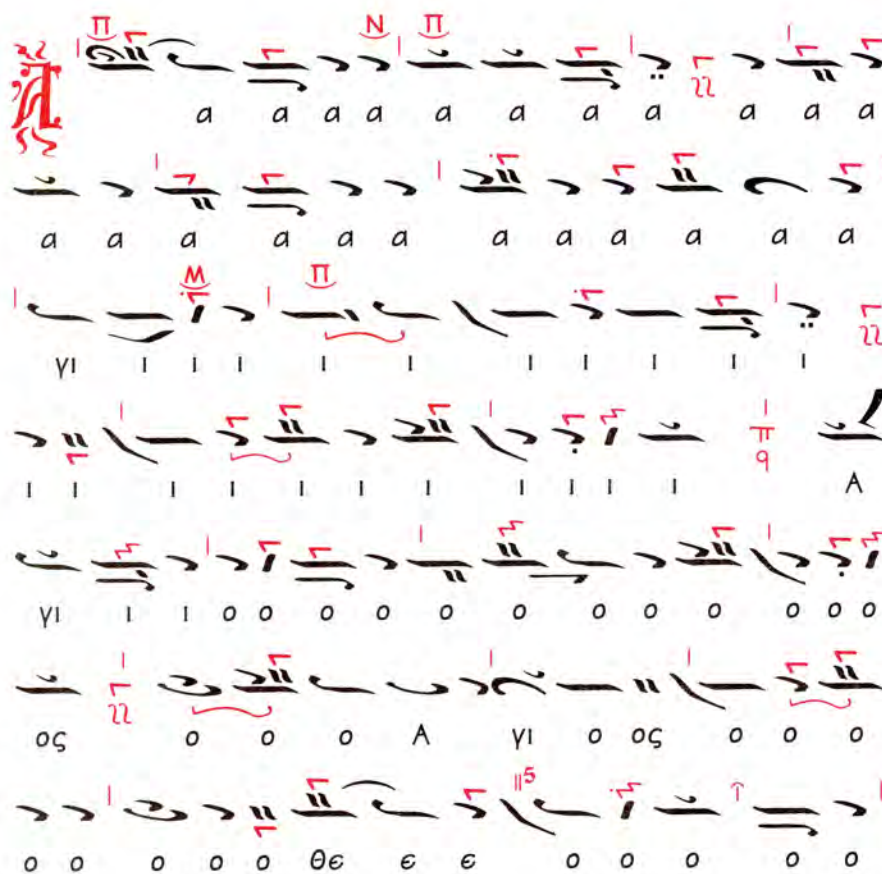 Π Ν Π
Α α α α α α α α α α α α
α α α α α α α α α α α α
Μ Π
γι ι ι ι ι ι ι ι ι ι ι
ι ι ι ι ι ι ι ι ι ι ι Α
γι ι ι ο ο ο ο ο ο ο ο ο ο ο ο
ος ο ο ο Α γι ο ος ο ο ο
5
ο ο ο ο ο Θε ε ε ο ο ο ο ο